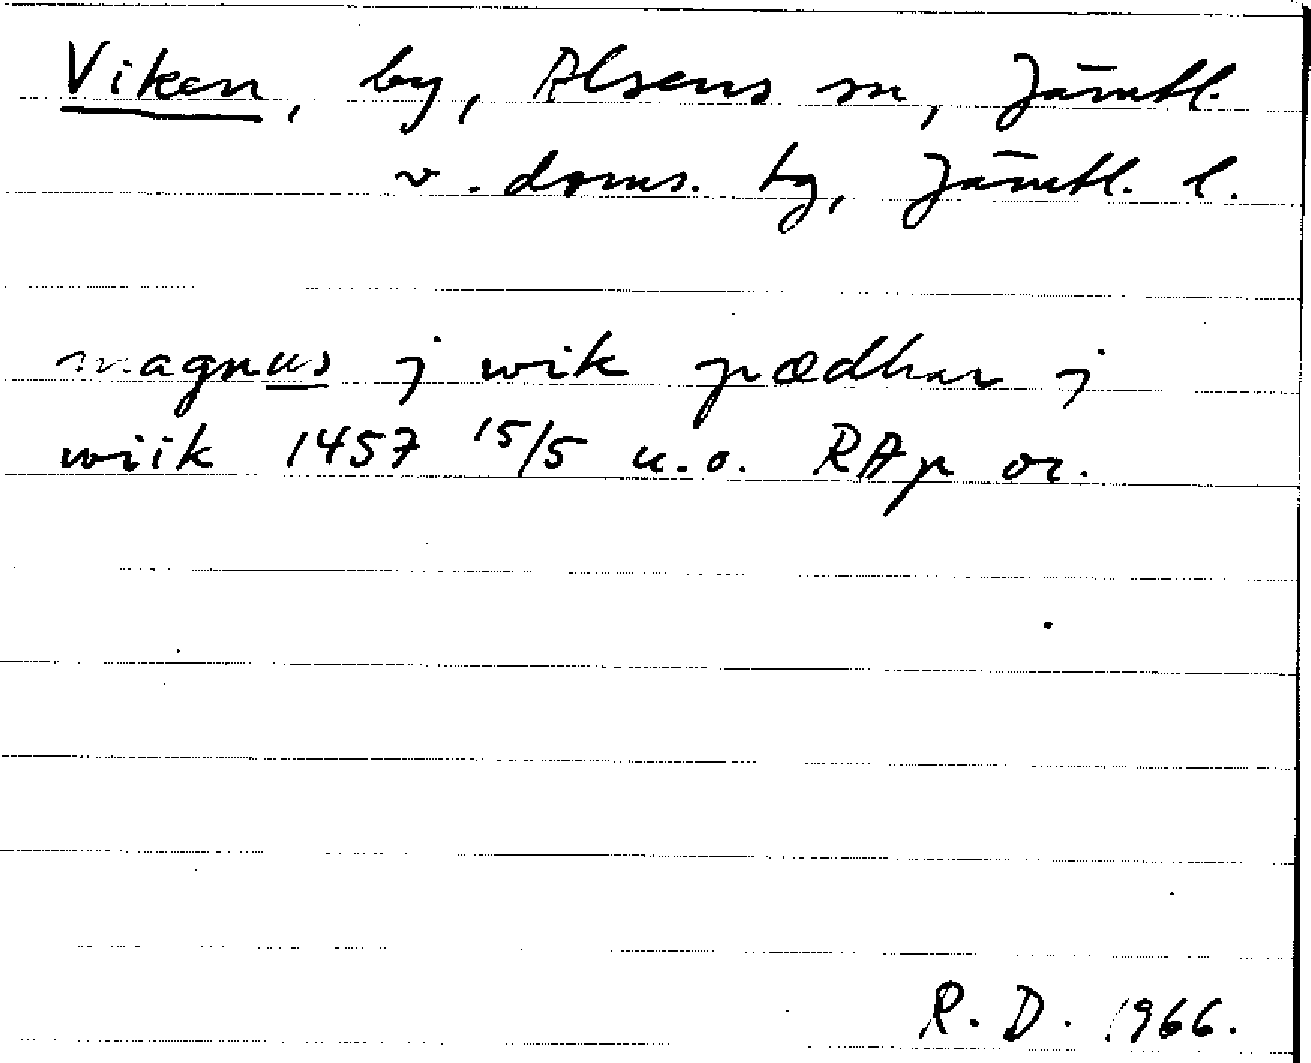 Viken, by, Alsens sn, Jämtl.
v. doms. tg, Jämtl. l.
magnus j wik pædhar j
wiik 1457 15/5 u.o. RAp or.
R. D. 1966.